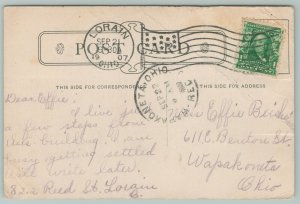 LORAIN
SEP 21
1907
OHIO
POST CARD
WAPAKONETA, OHIO
REC'D
THIS SIDE FOR CORRESPONDENCE
THIS SIDE FOR ADDRESS
Dear Effie:
I live just
a few steps from
this building. I am
busy getting settled
will write later.
822 Reed St. Lorain
O.
Miss Effie
611 E. Benton St.
Wapakoneta
Ohio